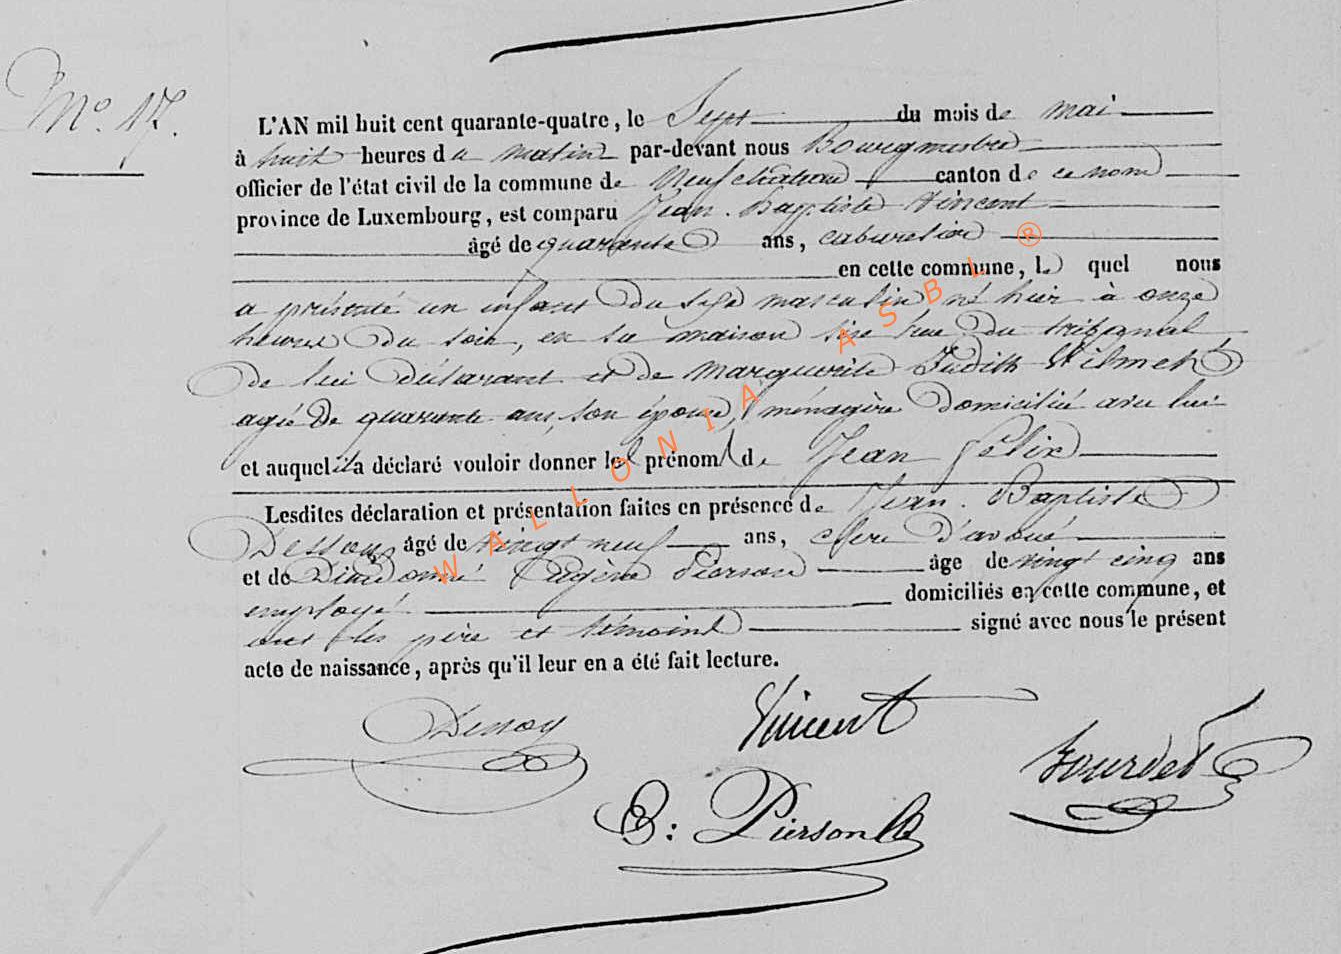 No. 17.
L'AN mil huit cent quarante-quatre, le Sept du mois de mai
à huit heures du matin par-devant nous Bourgmestre
officier de l'état civil de la commune de Neufchâteau canton de ce nom
province de Luxembourg, est comparu Jean Baptiste Vincent
âgé de quarante ans, cabaretier
en cette commune, lequel nous
a présenté un enfant du sexe masculin né hier à onze
heures du soir, en sa maison sise rue du tribunal
de lui déclarant et de Marguerite Judith
agée de quarante ans, son épouse, ménagère domiciliée avec lui
et auquel il a déclaré vouloir donner les prénoms de Jean Félix
Lesdites déclaration et présentation faites en présence de Jean Baptiste
Dessoy âgé de vingt neuf ans, clerc d'avoué
et de Dieudonné Eugène Pierson âge de vingt cinq ans
employé domiciliés en cette commune, et
ont les père et témoins signé avec nous le présent
acte de naissance, après qu'il leur en a été fait lecture.
Dessoy Vincent
Bourdet
E: Pierson
WALLONIA ASBL ®